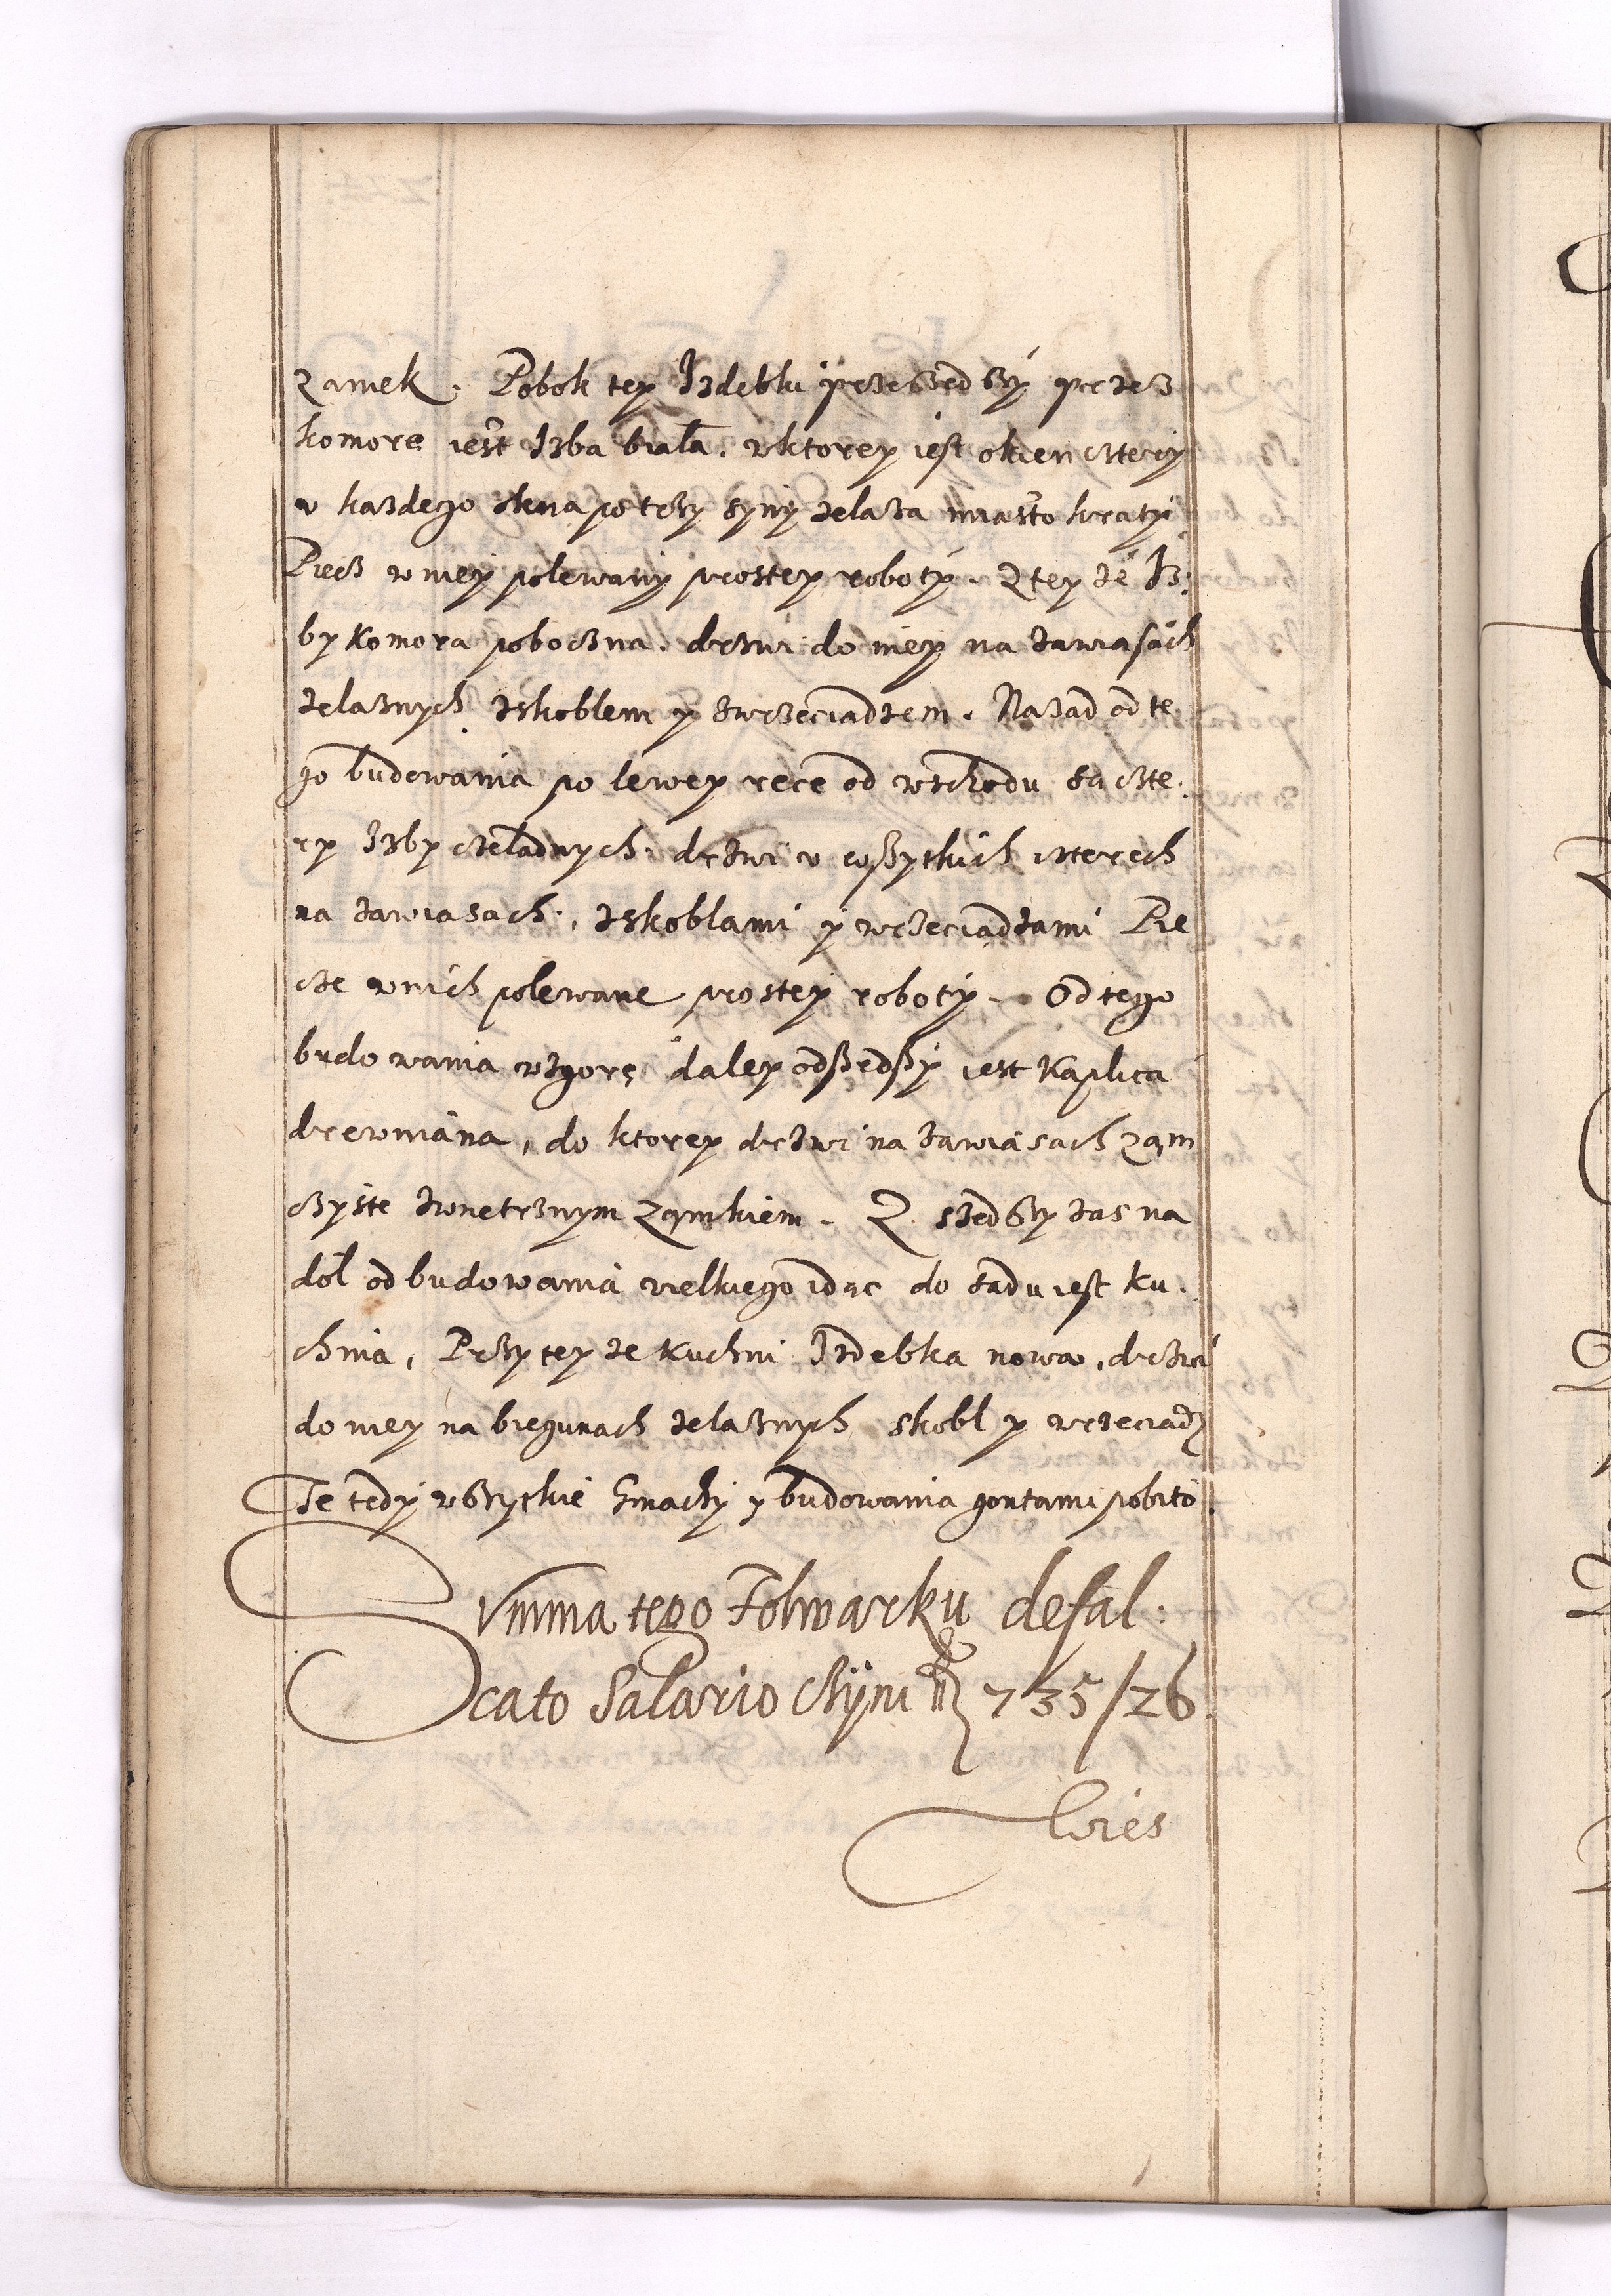 zamek. Pobok tey Izdebki przeszedszy przez
komorę iest Izba biała. wktorey iest okien cztery
v kazdego okna po trzy syny zelaza miasto kraty
Piecz wniey polewany prostey roboty. Z tey ze Iz:
by Komora poboczna. drzwi do niey na zawiasach
zelaznych zskoblem y zwrzeciadzem. Nazad od te
go budowania po lewey ręce od wschodu są czte:
ry Izby czeladnych. drzwi v wszytkich czterech
na zawiasach, zskoblami y wrzeciadzami Pie
cze wnich polewane prostey roboty. Od tego
budowania wzgorę daley odszedszy iest Kaplica
drewniana, do ktorey drzwi na zawiasach zam
czyste zwnetrznym zamkiem. Z szedszy zas na
dół od budowania wielkiego idąc do sadu iest Ku.
chnia, Przy tey ze Kuchni Izdebka nowa, drzwi
do niey na biegunach zelaznych skobl y wrzeciadz
Te tedy wszytkie Gmachy y budowania gontami pobito.
Summa tego Folwarku defal:
cato Salario czyni 735/26.
Wies